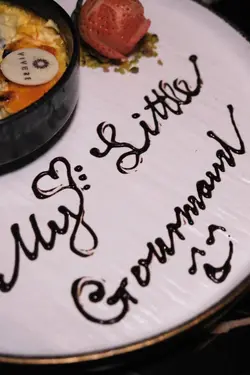 VIVERE
My Little
Gourmand